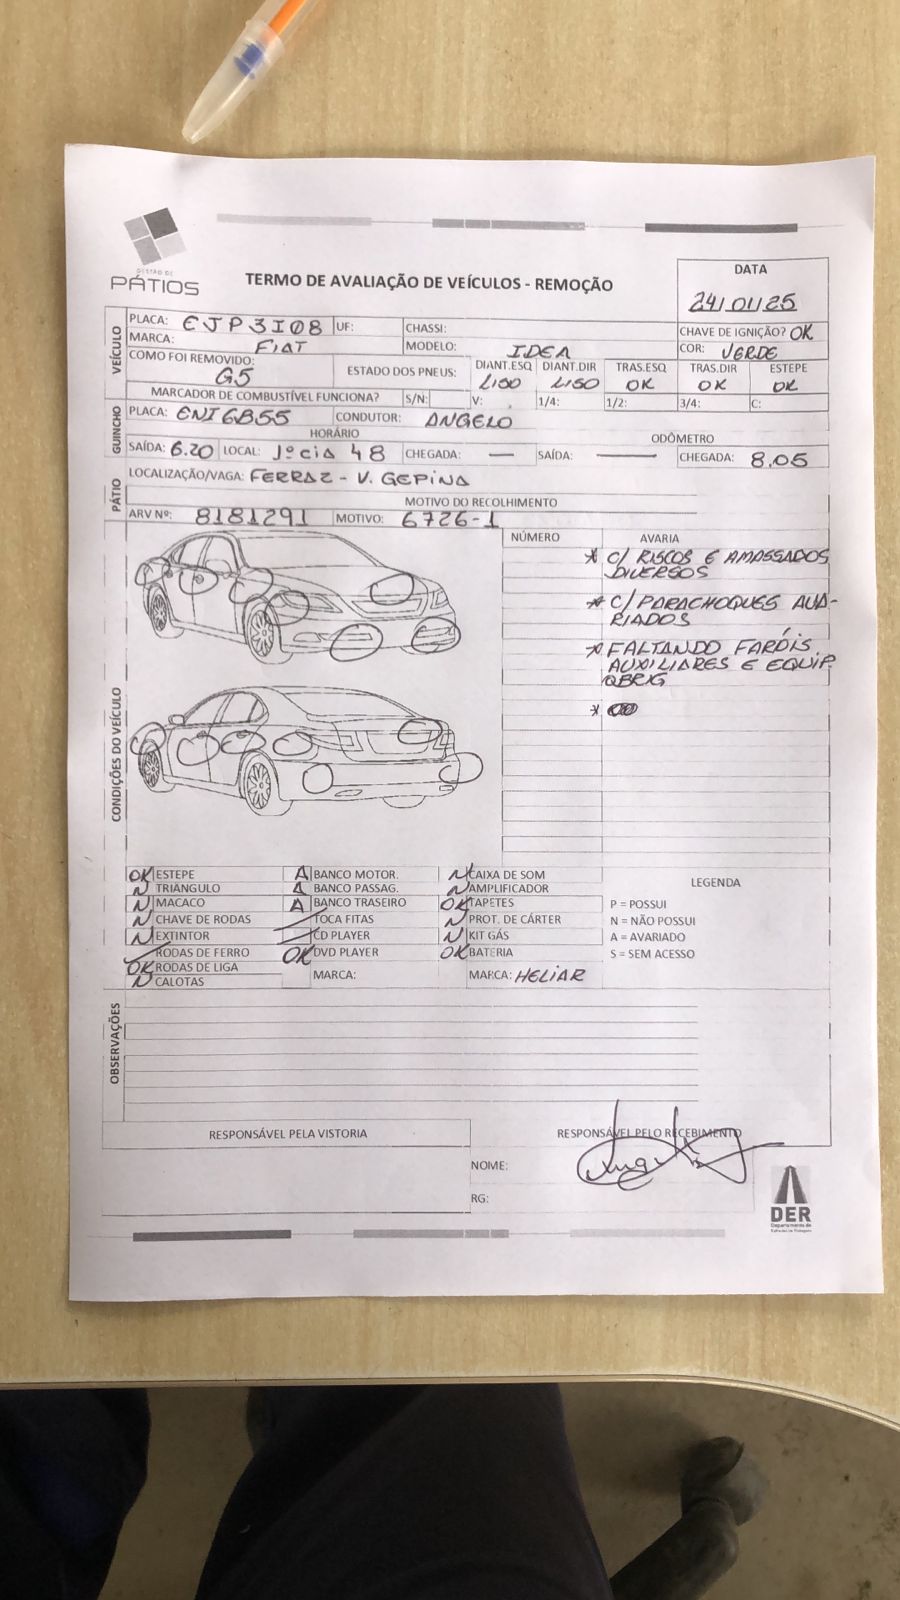 GESTÃO DE
PÁTIOS
TERMO DE AVALIAÇÃO DE VEÍCULOS - REMOÇÃO
DATA
24/01/25
VEÍCULO
PLACA: EJP3I08 UF: CHASSI: CHAVE DE IGNIÇÃO? OK
MARCA: FIAT MODELO: IDEA COR: VERDE
COMO FOI REMOVIDO: G5 ESTADO DOS PNEUS: DIANT.ESQ LISO DIANT.DIR LISO TRAS.ESQ OK TRAS.DIR OK ESTEPE OK
MARCADOR DE COMBUSTÍVEL FUNCIONA? S/N: V: 1/4: 1/2: 3/4: C:
GUINCHO
PLACA: ENI6B55 CONDUTOR: ANGELO
HORÁRIO ODÔMETRO
SAÍDA: 6.20 LOCAL: 1º CIA 48 CHEGADA: — SAÍDA: — CHEGADA: 8.05
PÁTIO
LOCALIZAÇÃO/VAGA: FERRAZ - V. GEPINA
MOTIVO DO RECOLHIMENTO
ARV Nº: 8181291 MOTIVO: 6726-1
CONDIÇÕES DO VEÍCULO
NÚMERO AVARIA
* C/ RISCOS E AMASSADOS
DIVERSOS
* C/ PARACHOQUES AVA-
RIADOS
* FALTANDO FARÓIS
AUXILIARES E EQUIP.
OBRIG
*
OK ESTEPE A BANCO MOTOR. N CAIXA DE SOM
N TRIÂNGULO A BANCO PASSAG. N AMPLIFICADOR
N MACACO A BANCO TRASEIRO OK TAPETES
N CHAVE DE RODAS / TOCA FITAS N PROT. DE CÁRTER
N EXTINTOR / CD PLAYER N KIT GÁS
/ RODAS DE FERRO OK DVD PLAYER OK BATERIA
OK RODAS DE LIGA MARCA: MARCA: HELIAR
N CALOTAS
LEGENDA
P = POSSUI
N = NÃO POSSUI
A = AVARIADO
S = SEM ACESSO
OBSERVAÇÕES
RESPONSÁVEL PELA VISTORIA RESPONSÁVEL PELO RECEBIMENTO
NOME:
RG:
DER
Departamento de
Estradas de Rodagem